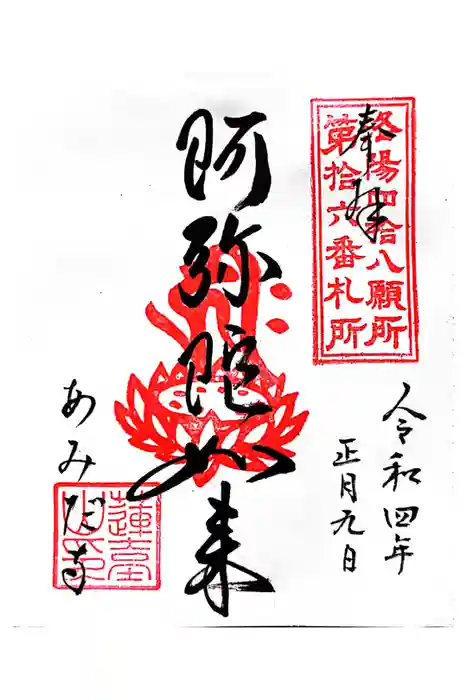 奉拝
洛陽四拾八願所
第拾六番札所
令和四年
正月九日
阿弥陀如来
あみだ寺
蓮臺山印